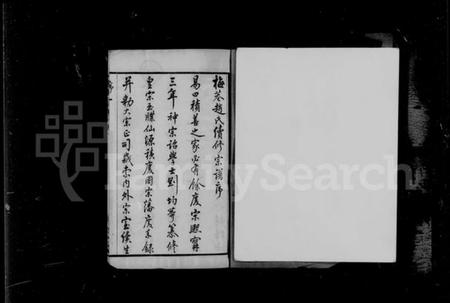 梅巷趙氏續修宗譜序
易曰積善之家必有餘慶宗熙寧
三年神宗詔學士劉均等纂修
皇宗玉牒仙源積慶圖宗藩慶系錄
并勅大宗正司藏本內外宗室續生
FamilySearch